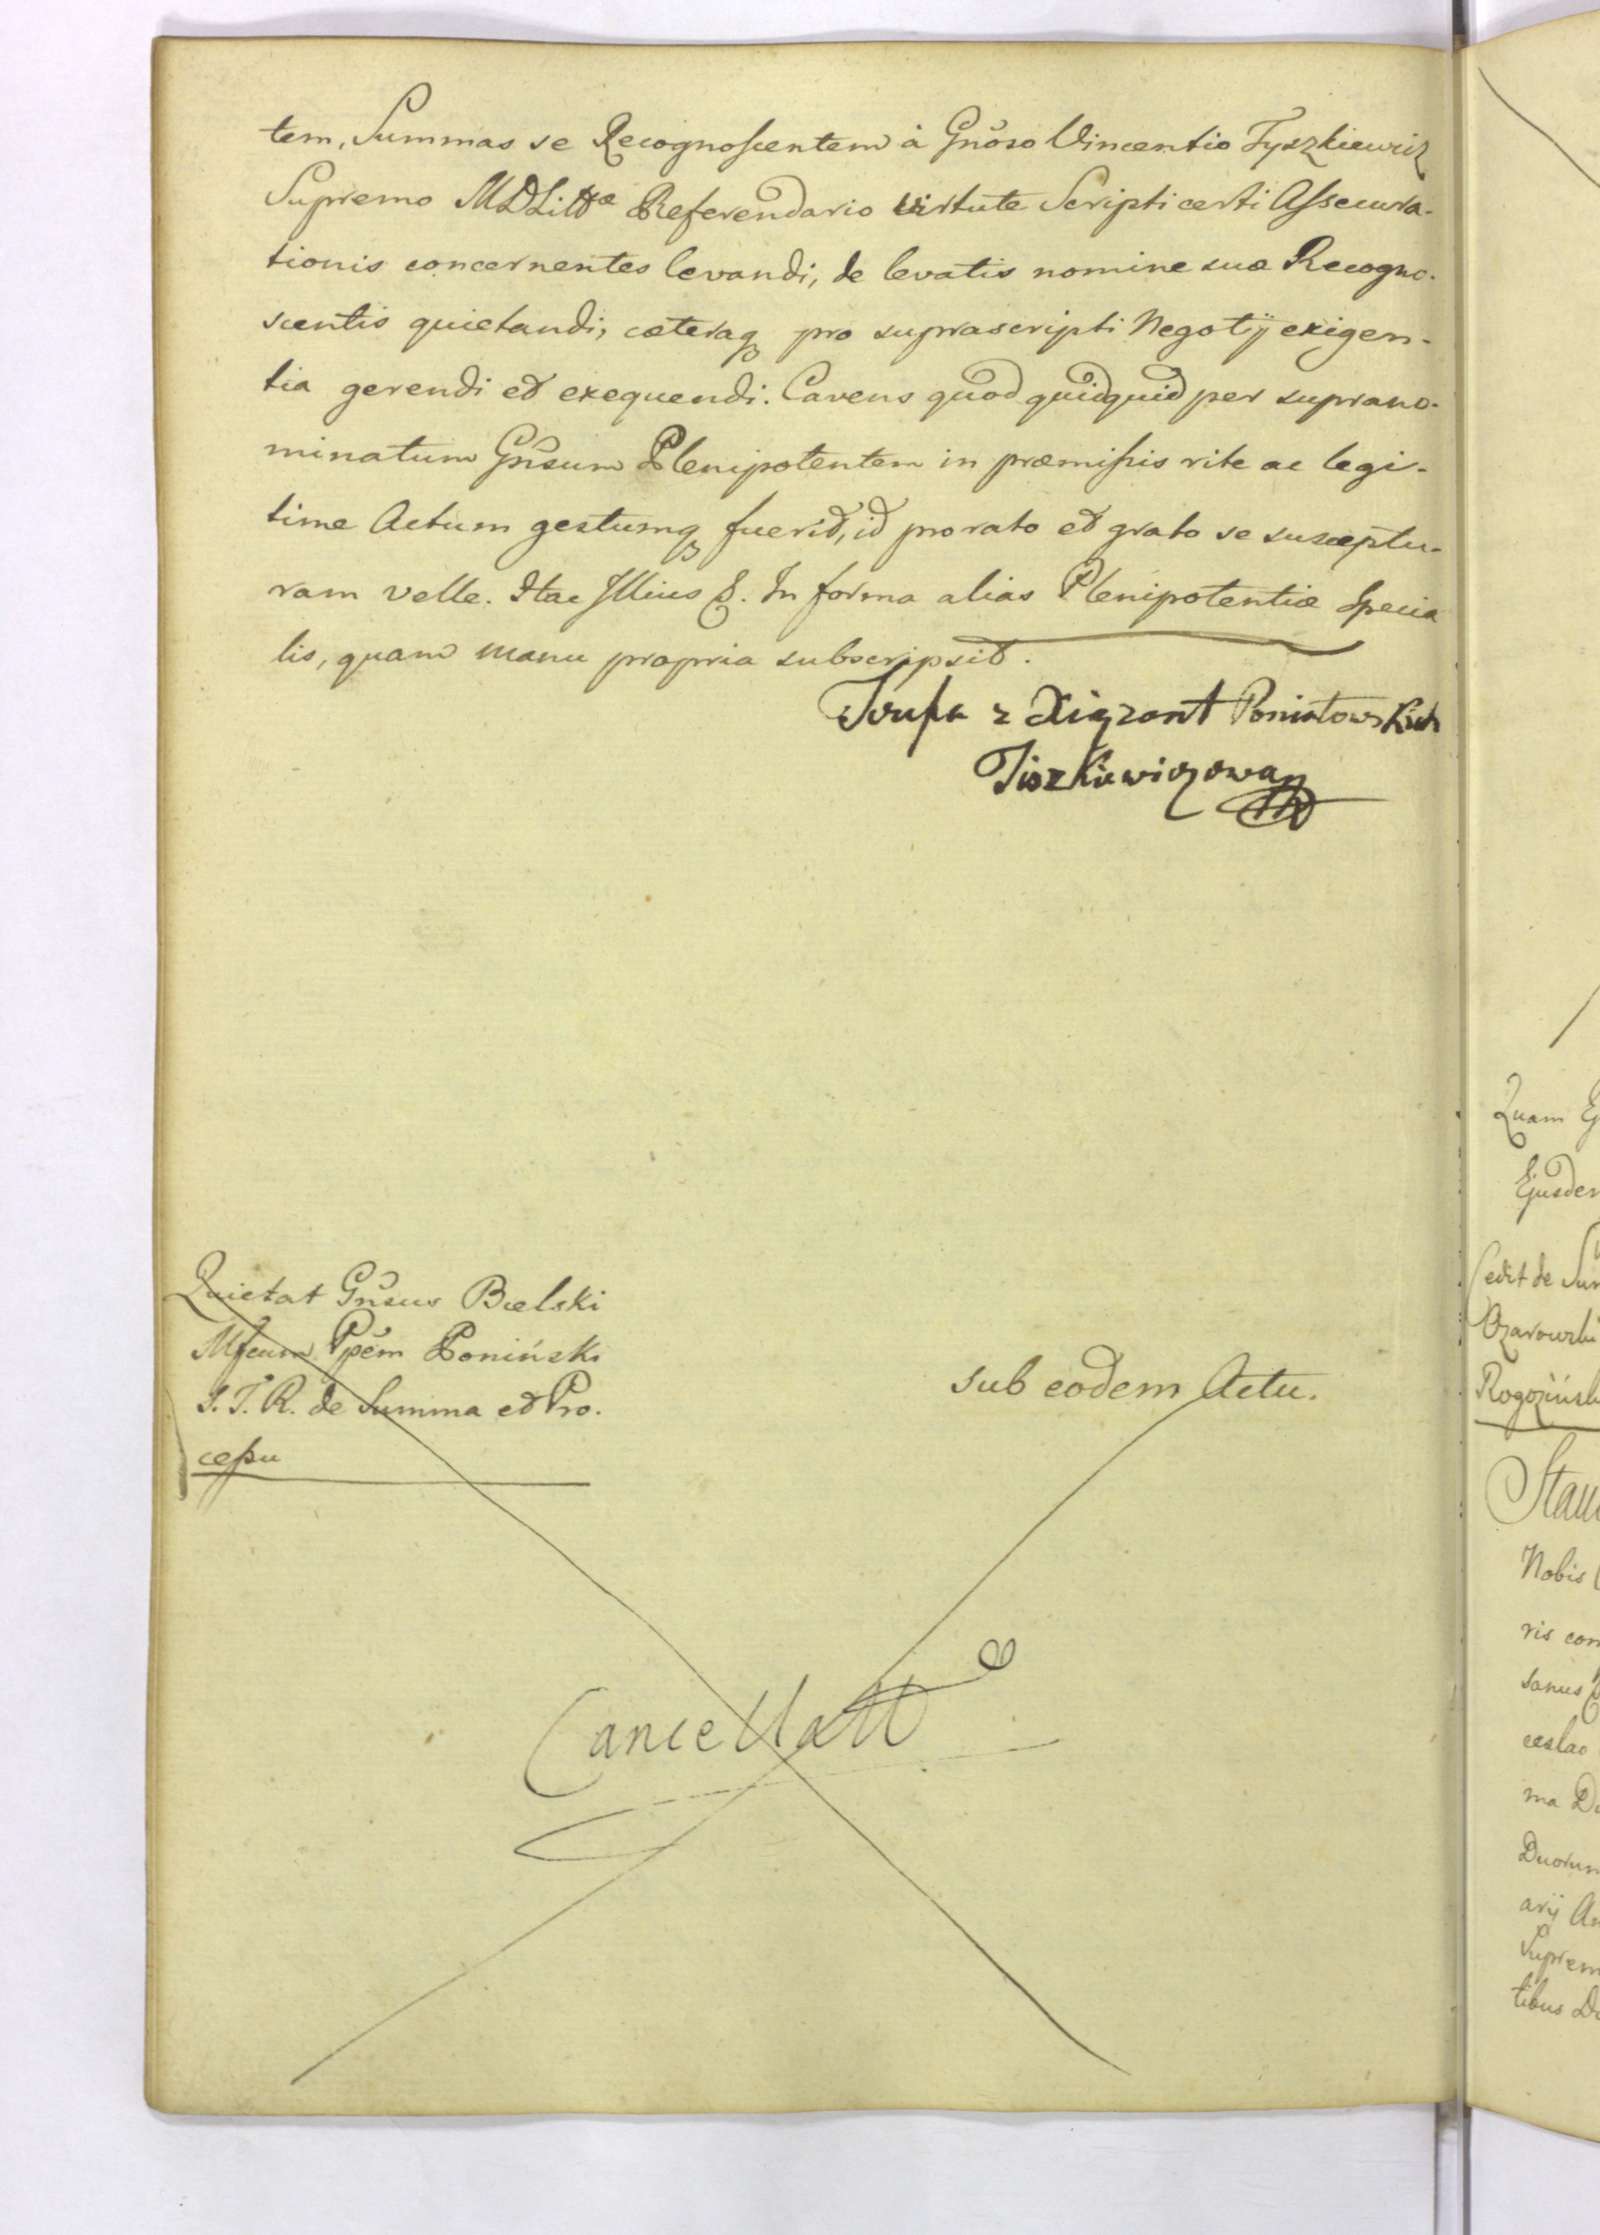 tem, Summas se Recognoscentem à Gnoso Vincentio Tyszkiewicz
Supremo MDLittæ Referendario virtute Scripti certi Assecura-
tionis concernentes levandi, de levatis nomine suæ Recogno-
scentis quietandi, cæteraq pro suprascripti Negotij exigen-
tia gerendi et exequendi. Cavens quod quidquid per suprano-
minatum Gnsum Plenipotentem in præmissis rite ac legi-
time Actum gestumq fuerit, id pro rato et grato se susceptu-
ram velle. Itae Illius &. In forma alias Plenipotentiæ Specia
lis, quam manu propria subscripsit.
z Xiązont Poniatowskich
Tiszkiewiczowa
Quietat Gnsus Bielski
Mfcum Ppem Poniński
S.T.R. de Summa et Pro-
cessu
sub eodem Actu.
Cancellatt
Quam
Ejusdem
Cedit de Sum
Ożarowski
Rogoziński
Stani
Nobis
ris com
sanus
ceslao
ma
Duorum
arij
Suprem
tibus